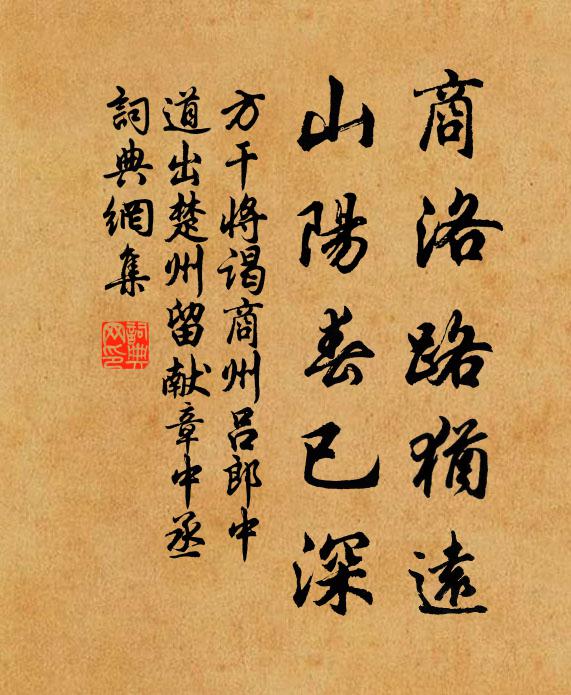 商洛路猶遠
山陽春已深
方干将谒商州吕郎中
道出楚州留献章中丞
詞典網集
詞典網印